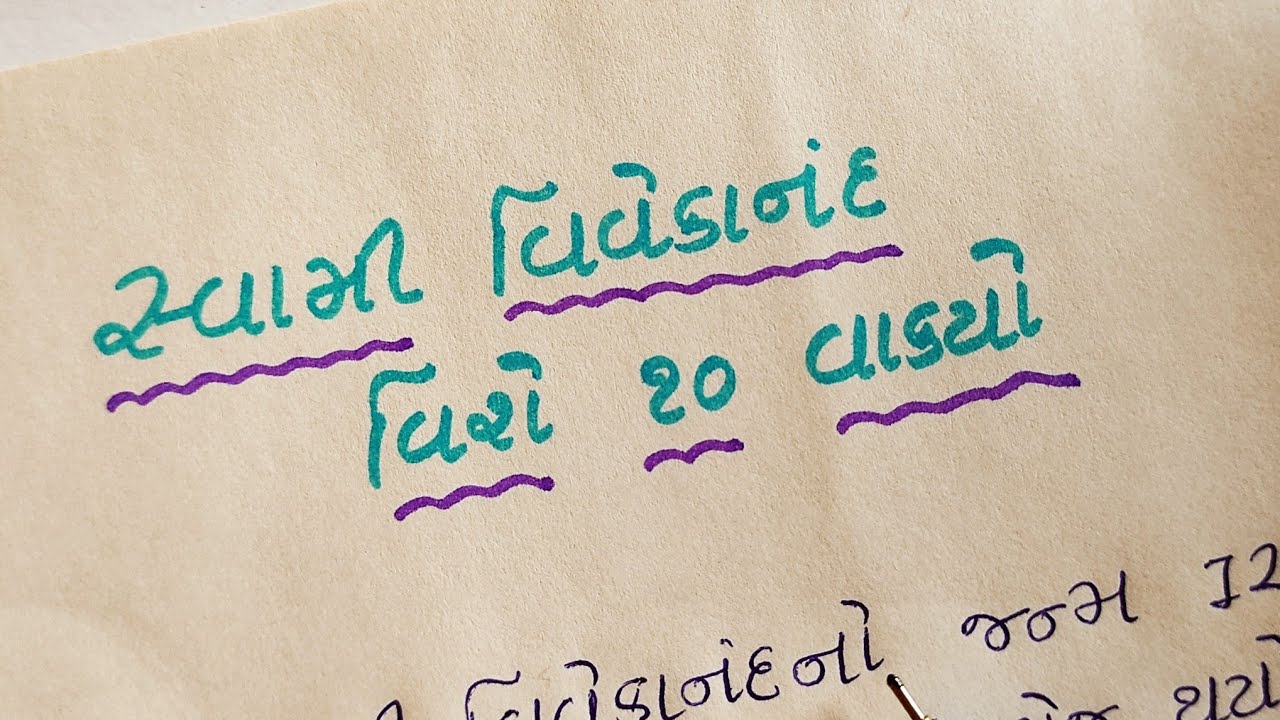 સ્વામી વિવેકાનંદ
વિશે ૧૦ વાક્યો
વિવેકાનંદનો જન્મ 12
થયો